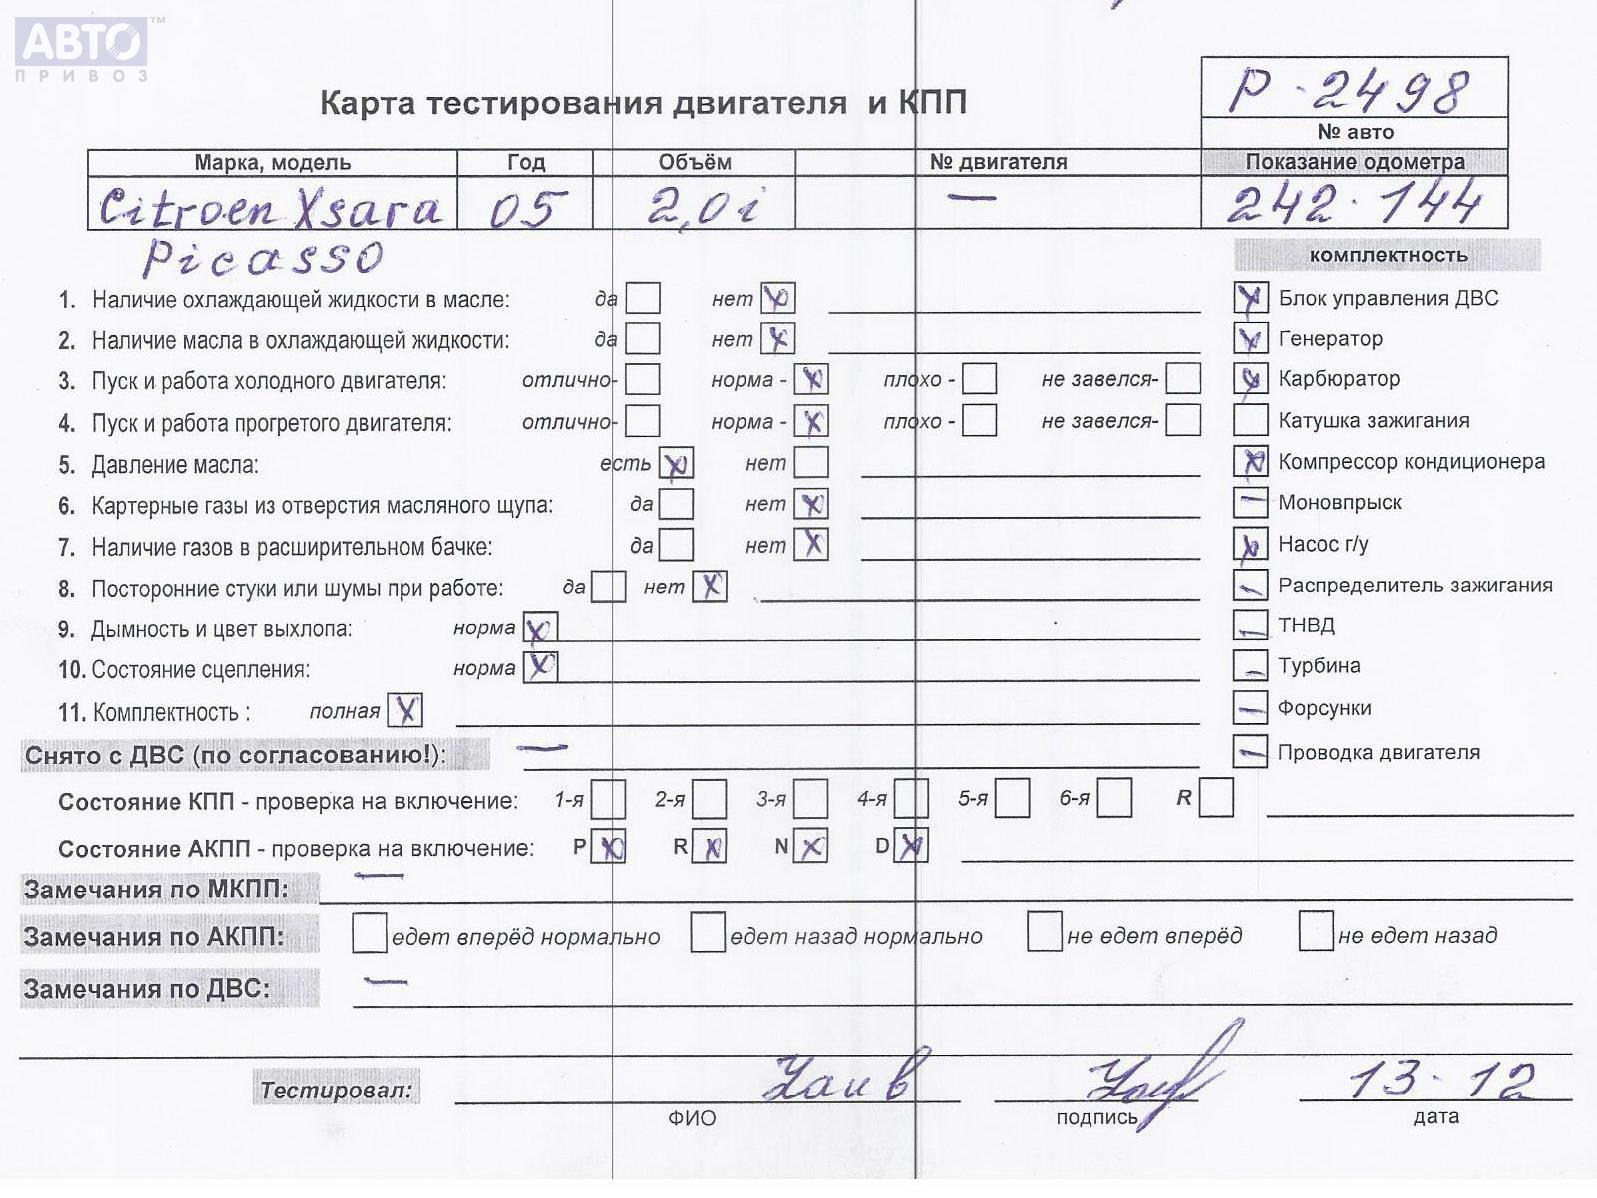 АВТО ™
ПРИВОЗ
Р-2498
Карта тестирования двигателя и КПП
№ авто
Марка, модель Год Объём № двигателя Показание одометра
Citroen Xsara 05 2,0i — 242.144
Picasso
комплектность
1. Наличие охлаждающей жидкости в масле: да нет X Блок управления ДВС
2. Наличие масла в охлаждающей жидкости: да нет X Генератор
3. Пуск и работа холодного двигателя: отлично- норма - X плохо - не завелся- Карбюратор
4. Пуск и работа прогретого двигателя: отлично- норма - X плохо - не завелся- Катушка зажигания
5. Давление масла: есть X нет Компрессор кондиционера
6. Картерные газы из отверстия масляного щупа: да нет X Моновпрыск
7. Наличие газов в расширительном бачке: да нет X Насос г/у
8. Посторонние стуки или шумы при работе: да нет X Распределитель зажигания
9. Дымность и цвет выхлопа: норма X ТНВД
10. Состояние сцепления: норма X Турбина
11. Комплектность : полная X Форсунки
Снято с ДВС (по согласованию!): — Проводка двигателя
Состояние КПП - проверка на включение: 1-я 2-я 3-я 4-я 5-я 6-я R
Состояние АКПП - проверка на включение: P X R X N X D X
Замечания по МКПП: —
Замечания по АКПП: едет вперёд нормально едет назад нормально не едет вперёд не едет назад
Замечания по ДВС: —
Тестировал: 13-12
ФИО подпись дата